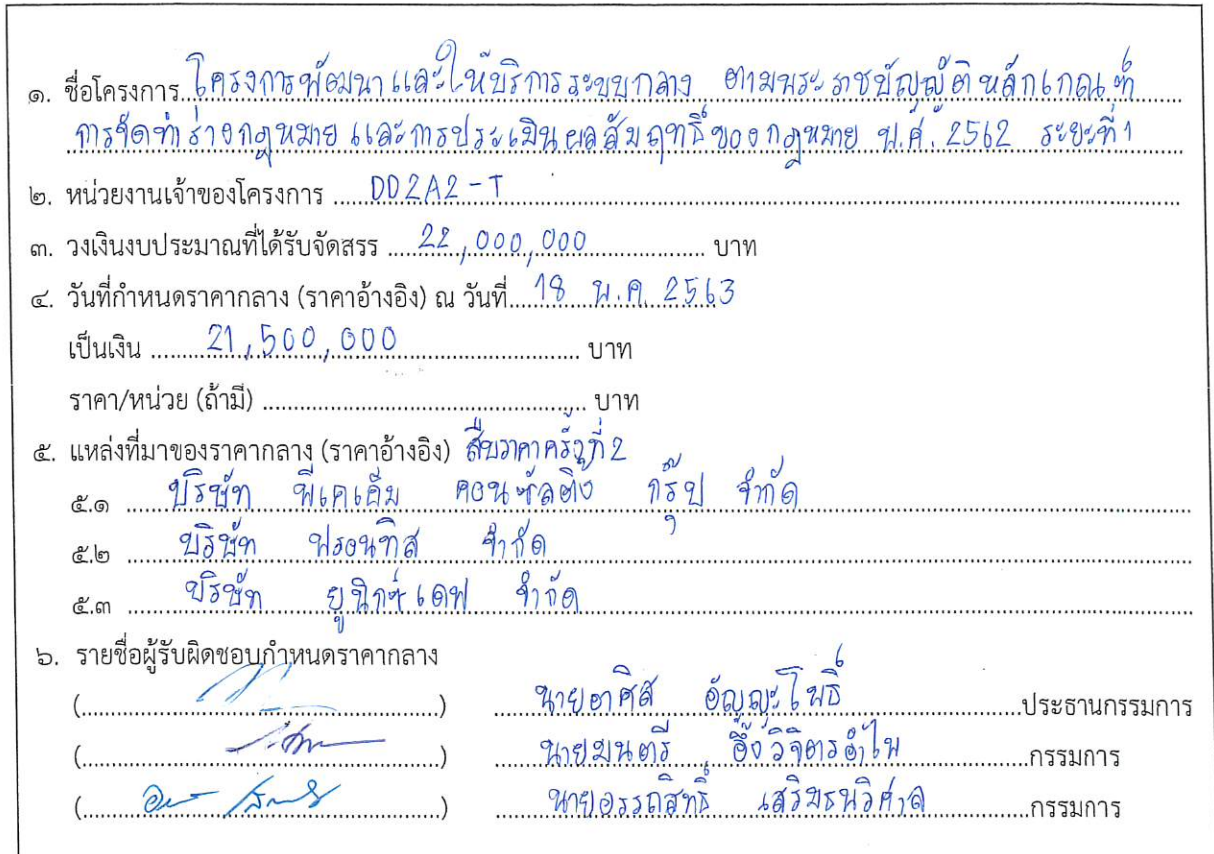 ๑. ชื่อโครงการ โครงการพัฒนาและให้บริการระบบกลาง ตามพระราชบัญญัติหลักเกณฑ์
การจัดทำร่างกฎหมายและการประเมินผลสัมฤทธิ์ของกฎหมาย พ.ศ. 2562 ระยะที่ 1
๒. หน่วยงานเจ้าของโครงการ ..... DD2A2-T
๓. วงเงินงบประมาณที่ได้รับจัดสรร ..... 22,000,000 ..... บาท
๔. วันที่กำหนดราคากลาง (ราคาอ้างอิง) ณ วันที่ ..... 18 พ.ค. 2563
เป็นเงิน ..... 21,500,000 ..... บาท
ราคา/หน่วย (ถ้ามี) ..... บาท
๕. แหล่งที่มาของราคากลาง (ราคาอ้างอิง) สืบราคาครั้งที่ 2
๕.๑ บริษัท พีเคเค็ม คอนซัลติ้ง กรุ๊ป จำกัด
๕.๒ บริษัท ฟรอนทิส จำกัด
๕.๓ บริษัท ยูนิกซ์เดฟ จำกัด
๖. รายชื่อผู้รับผิดชอบกำหนดราคากลาง
(.....) นายอาศิส อัญญะโพธิ์ ..... ประธานกรรมการ
(.....) นายมนตรี อึ้งวิจิตรอำไพ ..... กรรมการ
(.....) นายอรรถสิทธิ์ เสริมธนวิศาล ..... กรรมการ